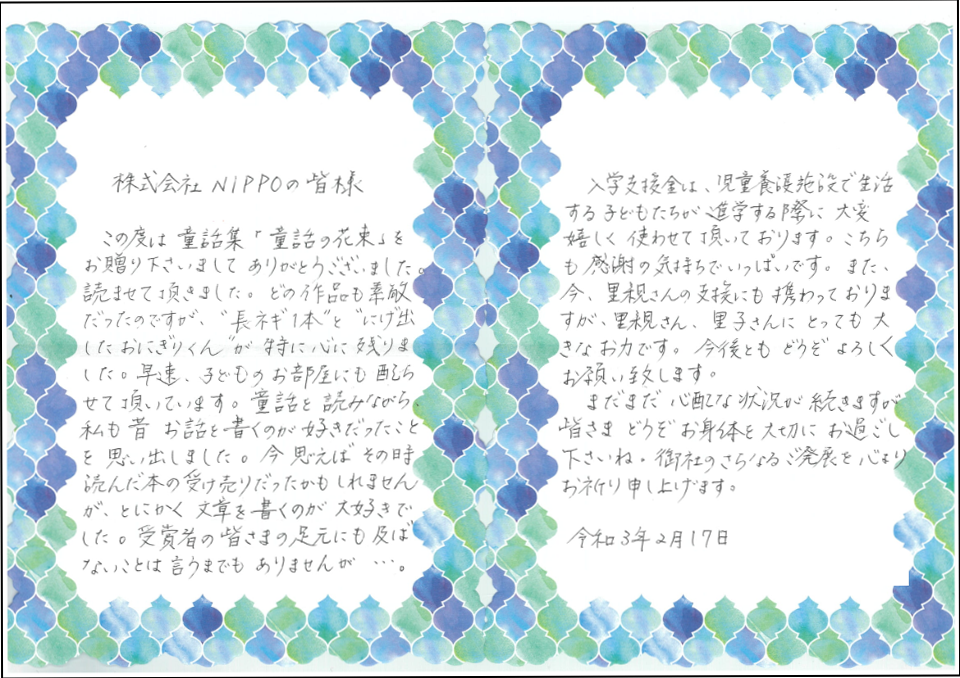 株式会社 NIPPOの皆様
この度は 童話集「童話の花束」を
お贈り下さいまして ありがとうございました。
読ませて頂きました。どの作品も素敵
だったのですが、"長ネギ1本"と"にげ出
したおにぎりくん"が 特に心に残りま
した。早速、子どものお部屋にも配ら
せて頂いています。童話を読みながら、
私も昔 お話を書くのが好きだったこと
を思い出しました。今思えば その時
読んだ本の受け売りだったかもしれません
が、とにかく文章を書くのが大好きで
した。受賞者の皆さまの足元にも及ば
ないことは言うまでもありませんが…。
入学支援金は、児童養護施設で生活
する子どもたちが進学する際に大変
嬉しく使わせて頂いております。こちら
も感謝の気持ちでいっぱいです。また、
今、里親さんの支援にも携わっておりま
すが、里親さん、里子さんにとっても大
きなお力です。今後ともどうぞよろしく
お願い致します。
まだまだ心配な状況が続きますが
皆さまどうぞお身体を大切にお過ごし
下さいね。御社のさらなるご発展を心より
お祈り申し上げます。
令和3年2月17日